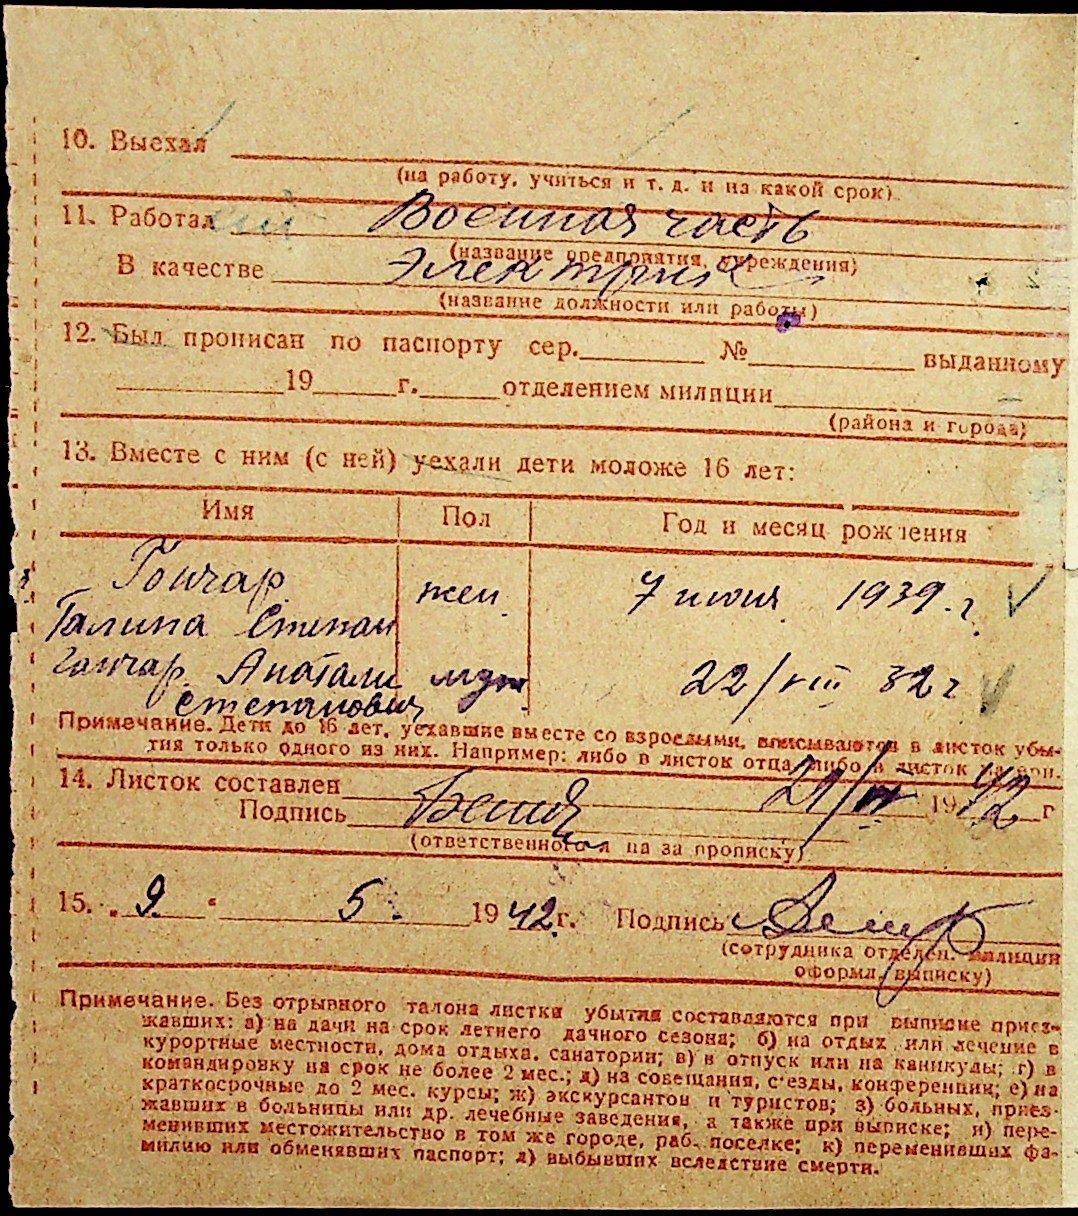 10. Выехал
(на работу, учиться и т. д. и на какой срок)
11. Работал Военная часть
(название предприятия, учреждения)
В качестве Электрик
(название должности или работы)
12. Был прописан по паспорту сер. № выданному
19 г. отделением милиции
(района и города)
13. Вместе с ним (с ней) уехали дети моложе 16 лет:
Имя Пол Год и месяц рождения
Гончар жен. 7 июня 1939 г.
Галина Степан
Гончар Анатоли муж 22/VIII 32 г
Степанович
Примечание. Дети до 16 лет, уехавшие вместе со взрослыми, вписываются в листок убы-
тия только одного из них. Например: либо в листок отца, либо в листок матери.
14. Листок составлен 21/IV 1942 г
Подпись
(ответственного л на за прописку)
15. 9. 5. 1942 г. Подпись
(сотрудника отделен. милиции
оформл. выписку)
Примечание. Без отрывного талона листки убытия составляются при выписке приез-
жавших: а) на дачи на срок летнего дачного сезона; б) на отдых или лечение в
курортные местности, дома отдыха. санатории; в) в отпуск или на каникулы; г) в
командировку на срок не более 2 мес.; д) на совещания, с'езды, конференции; е) на
краткосрочные до 2 мес. курсы; ж) экскурсантов и туристов; з) больных, приез-
жавших в больницы или др. лечебные заведения, а также при выписке; и) пере-
менивших местожительство в том же городе, раб. поселке; к) переменивших фа-
милию или обменявших паспорт; л) выбывших вследствие смерти.